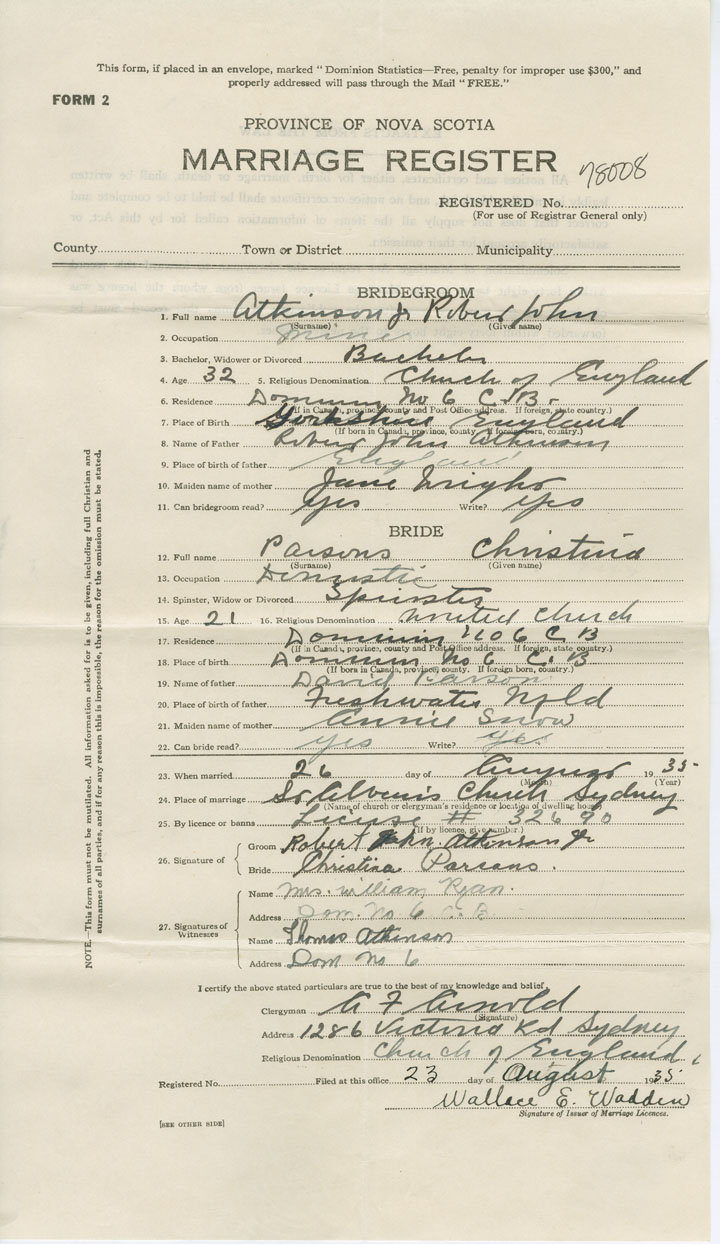 This form, if placed in an envelope, marked "Dominion Statistics—Free, penalty for improper use $300," and
properly addressed will pass through the Mail "FREE."
FORM 2
PROVINCE OF NOVA SCOTIA
MARRIAGE REGISTER 78008
REGISTERED No.
(For use of Registrar General only)
County Town or District Municipality
BRIDEGROOM
1. Full name Atkinson Jr Robert John
(Surname) (Given name)
2. Occupation Miner
3. Bachelor, Widower or Divorced Bachelor
4. Age 32 5. Religious Denomination Church of England
6. Residence Dominion No 6 C B.
(If in Canada, province, county and Post Office address. If foreign, state country.)
7. Place of Birth Yorkshire England
(If born in Canada, province, county. If foreign born, country.)
8. Name of Father Robert John Atkinson
9. Place of birth of father England
10. Maiden name of mother Jane Wright
11. Can bridegroom read? Yes Write? Yes
BRIDE
12. Full name Parsons Christina
(Surname) (Given name)
13. Occupation Domestic
14. Spinster, Widow or Divorced Spinster
15. Age 21 16. Religious Denomination United Church
17. Residence Dominion No 6 C B
(If in Canada, province, county and Post Office address. If foreign, state country.)
18. Place of birth Dominion No 6 C. B
(If born in Canada, province, county. If foreign born, country.)
19. Name of father David Parson
20. Place of birth of father Freshwater Nfld
21. Maiden name of mother Annie Snow
22. Can bride read? yes Write? yes
23. When married 26 day of August 1935
(Month) (Year)
24. Place of marriage St Albens Church Sydney
(Name of church or clergyman's residence or location of dwelling house)
25. By licence or banns License # 32690
(If by licence, give number.)
26. Signature of
Groom Robert John Atkinson Jr
Bride Christina Parsons.
27. Signatures of Witnesses
Name Mrs. William Ryan.
Address Dom. No 6 C. B.
Name Thomas Atkinson
Address Dom No 6
I certify the above stated particulars are true to the best of my knowledge and belief
Clergyman A F Arnold
(Signature)
Address 1286 Victoria Rd Sydney
Religious Denomination Church of England
Registered No. Filed at this office 23 day of August 1935
Wallace E. Wadden
Signature of Issuer of Marriage Licences.
[SEE OTHER SIDE]
NOTE.—This form must not be mutilated. All information asked for is to be given, including full Christian and
surnames of all parties, and if for any reason this is impossible, the reason for the omission must be stated.